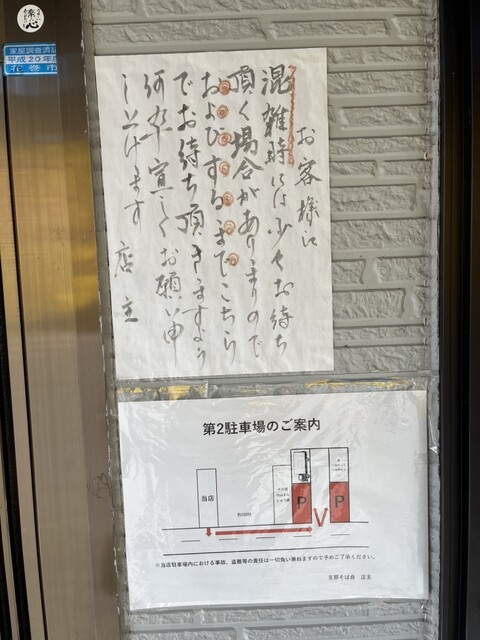 楽心
家屋調査済証
平成20年度
花巻市
お客様に
混雑時には少々お待ち
頂く場合がありまりので
およびするまでこちら
でお待ち頂きますよう
何卒宜しくお願い申
し上げます 店主
第2駐車場のご案内
当店
P
P
※当店駐車場内における事故、盗難等の責任は一切負い兼ねますので予めご了承ください。
支那そば店 店主